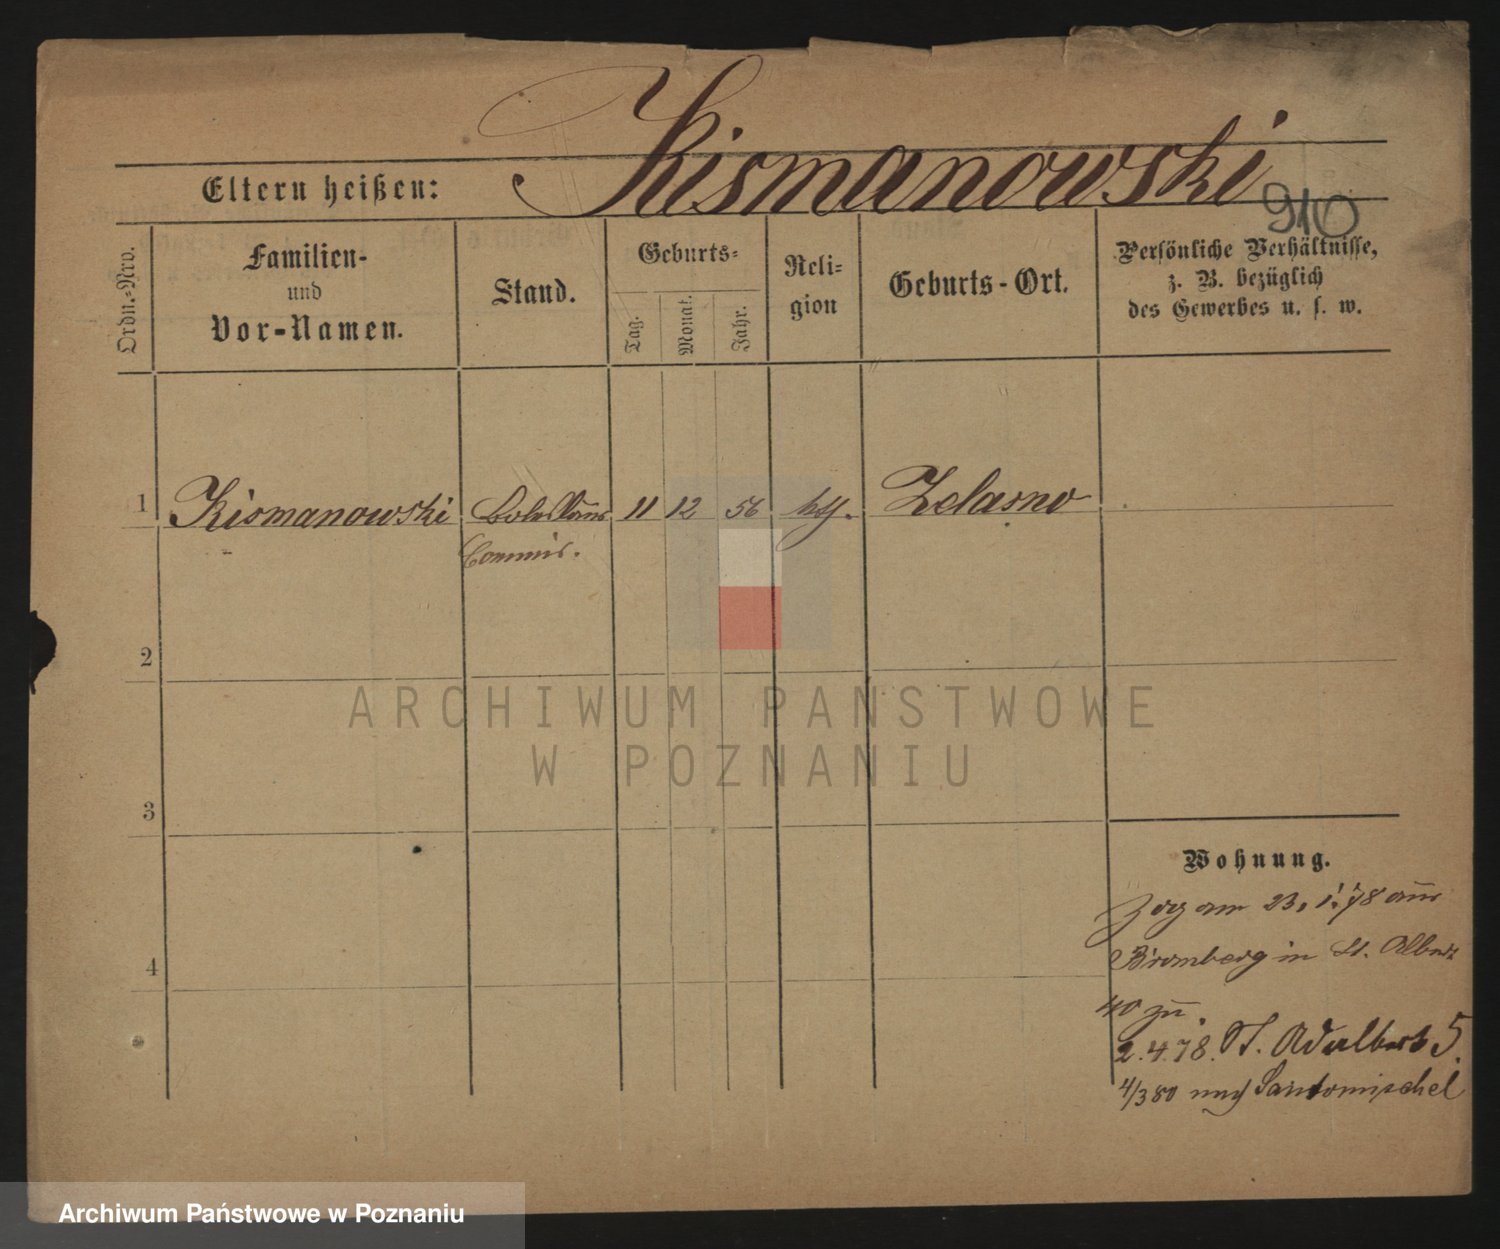 Kismanowski
Eltern heißen:
910
Ordn.-Nro.
Familien-
und
Vor-Namen.
Stand.
Geburts-
Tag.
Monat.
Jahr.
Reli-
gion
Geburts-Ort.
Persönliche Verhältnisse,
z. B. bezüglich
des Gewerbes u. s. w.
1 Kismanowski Boleslaus 11 12 56 kth. Zelasno
Commis.
2
3
4
ARCHIWUM PAŃSTWOWE
W POZNANIU
Wohnung.
Zog am 23. 1. 78 aus
Bromberg in St. Adalbert
40 zu.
2.4.78. St. Adalbert 5.
4/3 80 nach Santomischel
Archiwum Państwowe w Poznaniu